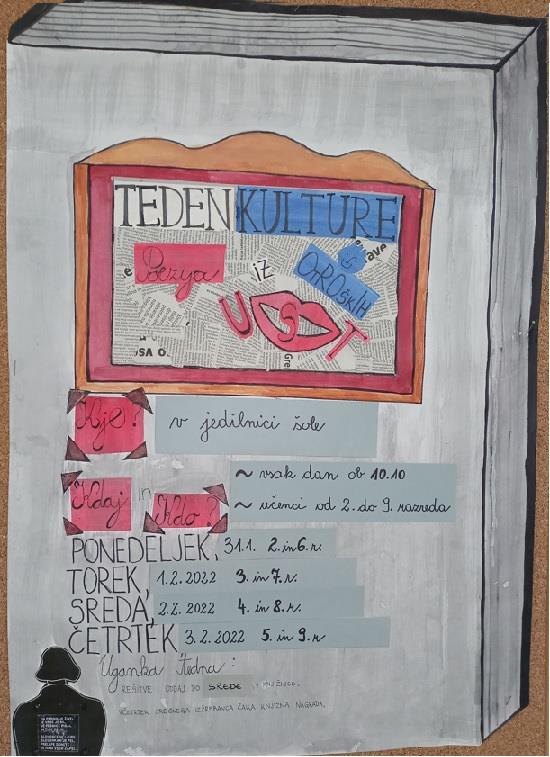 TEDEN KULTURE
Poezija iz OTROŠKIH
UST
Kje? v jedilnici šole
Kdaj in Kdo?
~ vsak dan ob 10.10
~ učenci od 2. do 9. razreda
PONEDELJEK, 31.1. 2. in 6. r.
TOREK, 1.2.2022 3. in 7. r.
SREDA, 2.2.2022 4. in 8. r.
ČETRTEK 3.2.2022 5. in 9. r
Uganka Tedna:
REŠITVE ODDAJ DO SREDE
ČAKA KNJIŽNA NAGRADA.